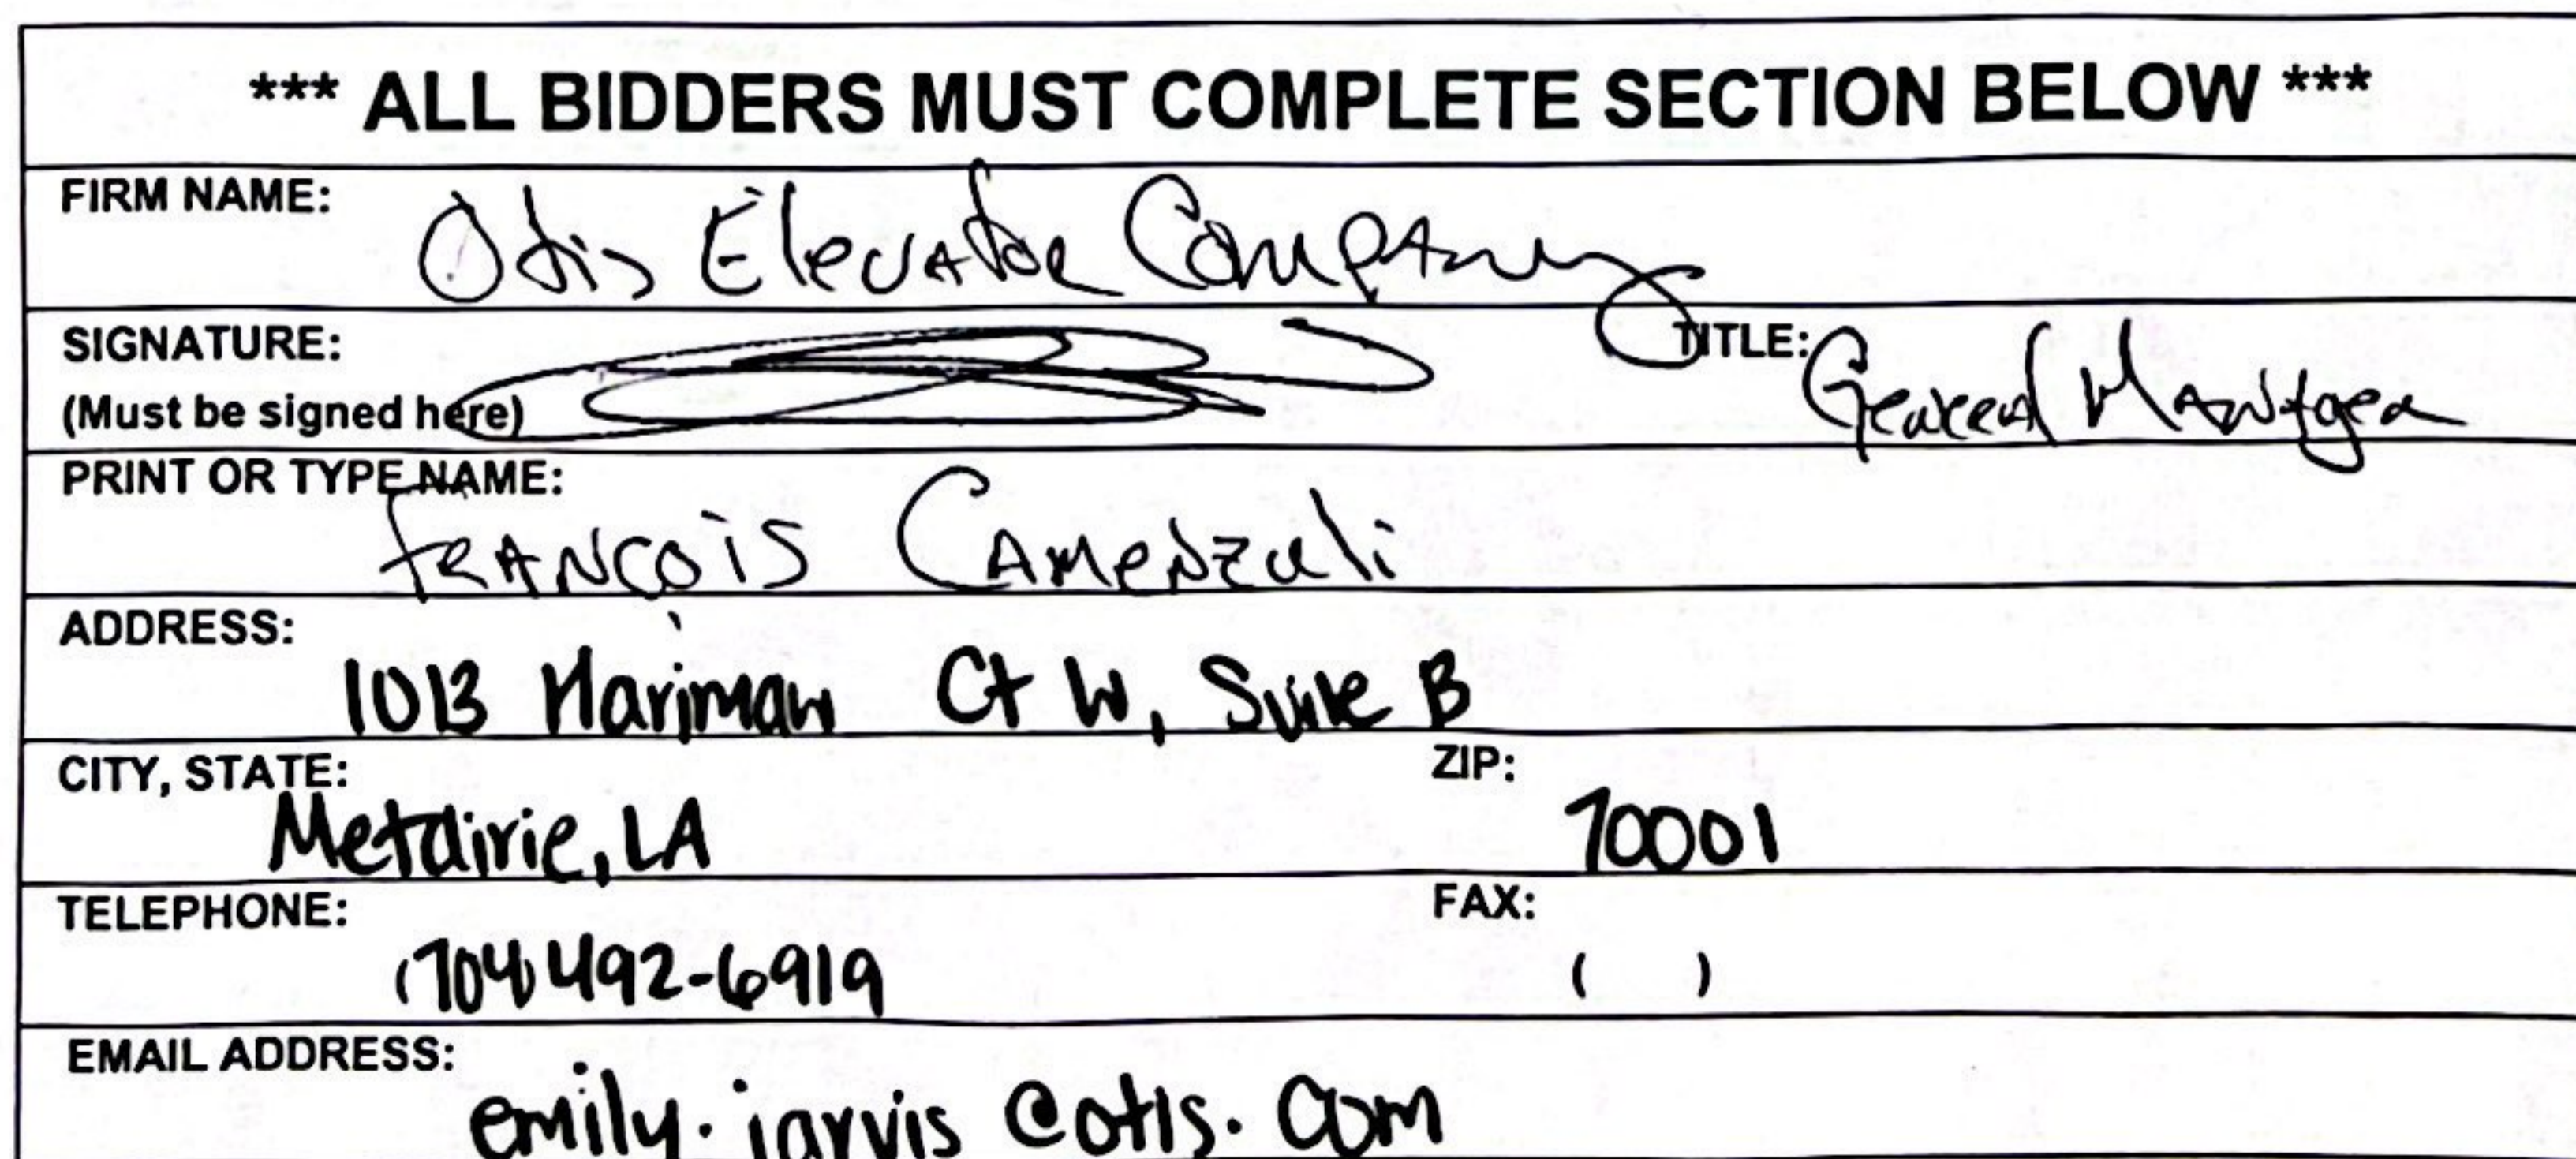 *** ALL BIDDERS MUST COMPLETE SECTION BELOW ***
FIRM NAME: Otis Elevator Company
SIGNATURE: TITLE: General Manager
(Must be signed here)
PRINT OR TYPE NAME: FRANCOIS CAMENZULI
ADDRESS: 1013 Ct W, Suite B
CITY, STATE: Metairie, LA ZIP: 70001
TELEPHONE: (704) 492-6919 FAX: ( )
EMAIL ADDRESS: emily.jarvis@otis.com